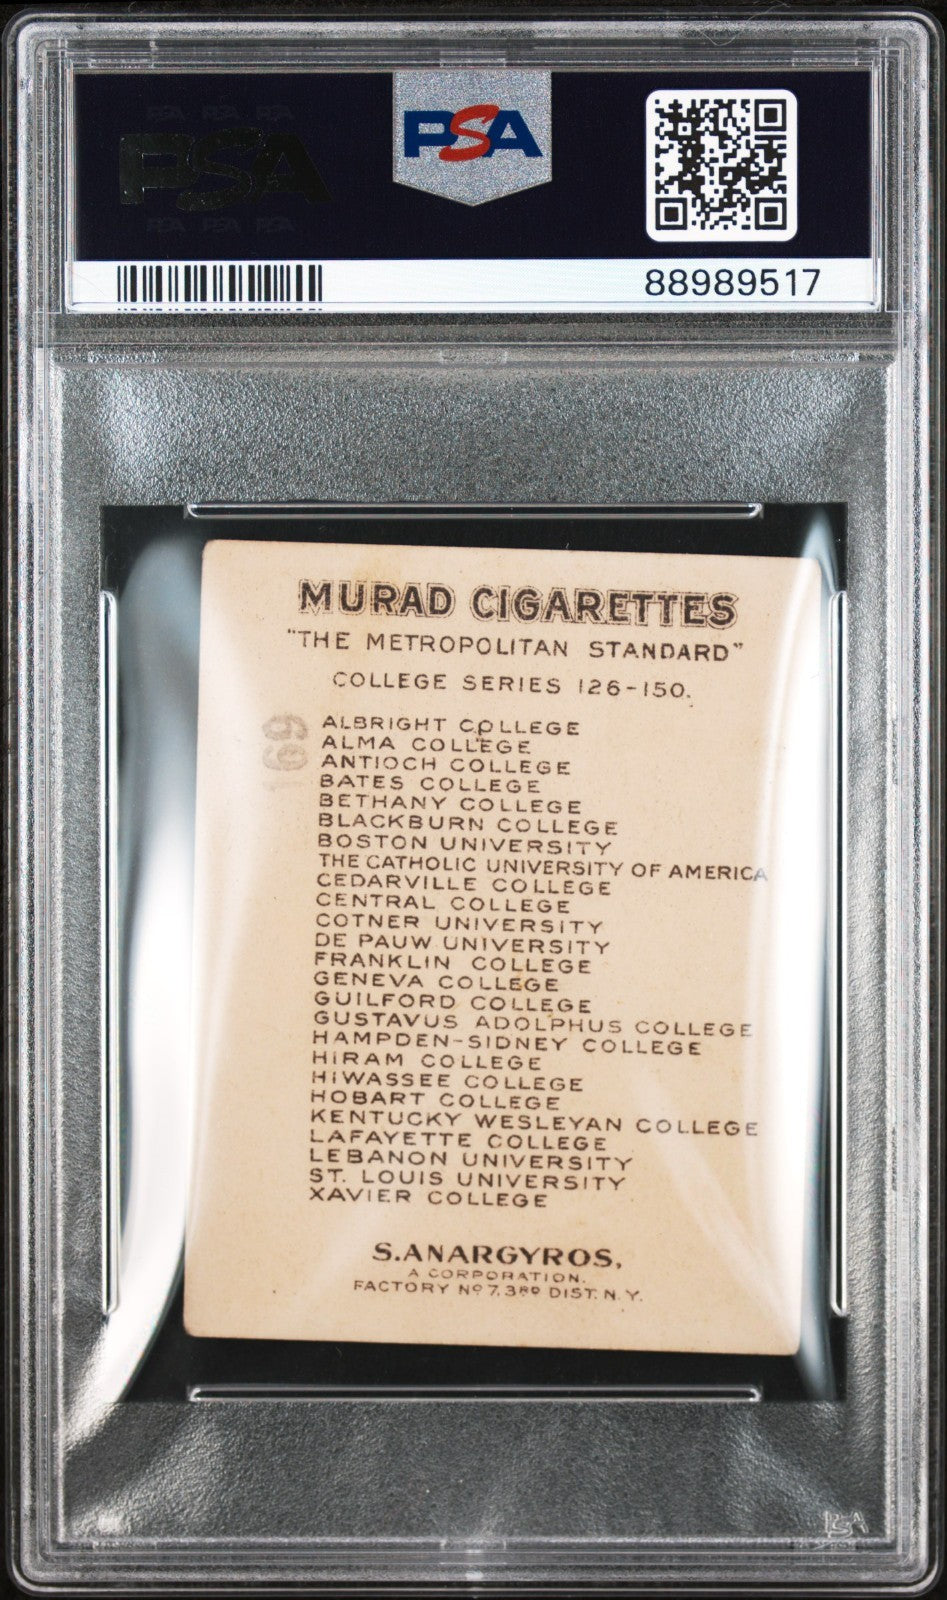 PSA PSA PSA
PSA
PSA PSA PSA
PSA
88989517
MURAD CIGARETTES
"THE METROPOLITAN STANDARD"
COLLEGE SERIES 126-150.
169
ALBRIGHT COLLEGE
ALMA COLLEGE
ANTIOCH COLLEGE
BATES COLLEGE
BETHANY COLLEGE
BLACKBURN COLLEGE
BOSTON UNIVERSITY
THE CATHOLIC UNIVERSITY OF AMERICA
CEDARVILLE COLLEGE
CENTRAL COLLEGE
COTNER UNIVERSITY
DE PAUW UNIVERSITY
FRANKLIN COLLEGE
GENEVA COLLEGE
GUILFORD COLLEGE
GUSTAVUS ADOLPHUS COLLEGE
HAMPDEN-SIDNEY COLLEGE
HIRAM COLLEGE
HIWASSEE COLLEGE
HOBART COLLEGE
KENTUCKY WESLEYAN COLLEGE
LAFAYETTE COLLEGE
LEBANON UNIVERSITY
ST. LOUIS UNIVERSITY
XAVIER COLLEGE
S. ANARGYROS,
A CORPORATION.
FACTORY Nº 7, 3RD DIST. N.Y.
PSA